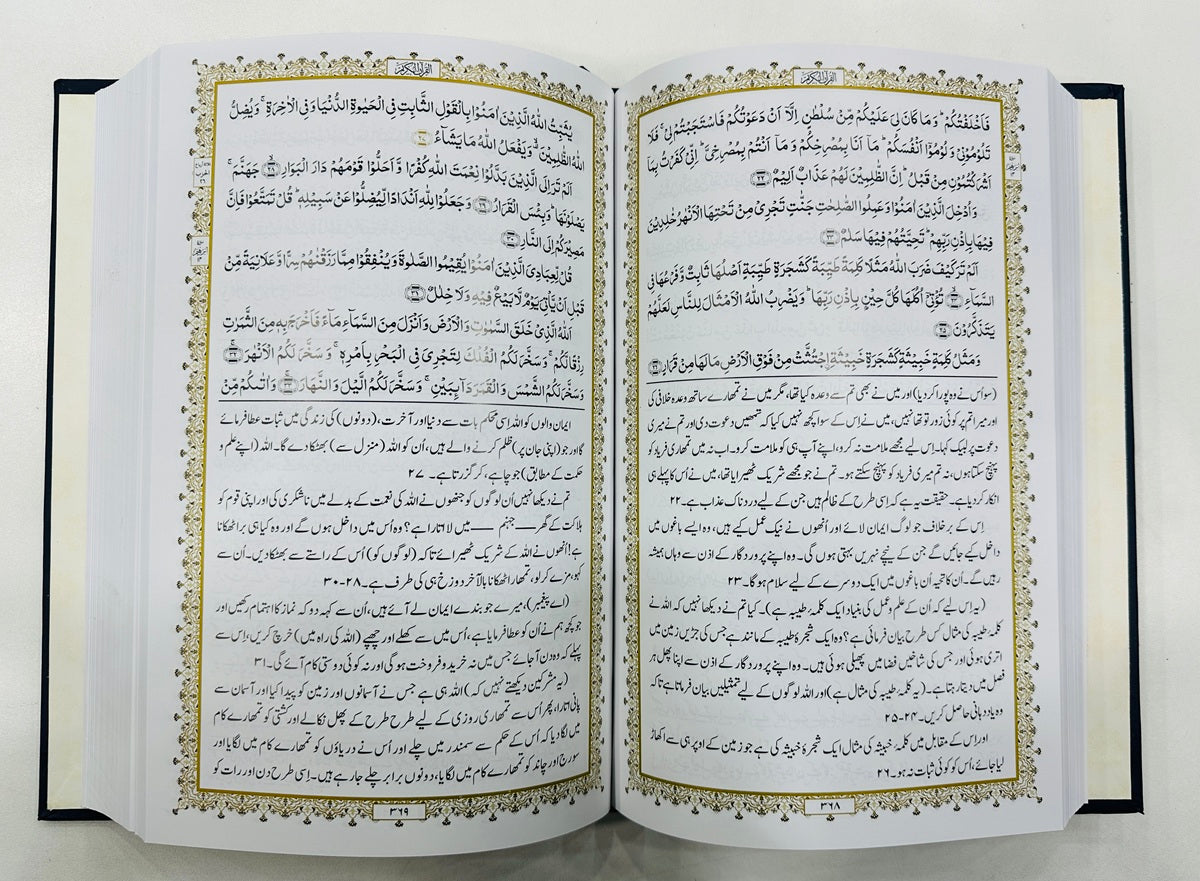 القرآن الكريم
فَاَخْلَفْتُكُمْ ؕ وَمَا كَانَ لِیَ عَلَیْكُمْ مِّنْ سُلْطٰنٍ اِلَّاۤ اَنْ دَعَوْتُكُمْ فَاسْتَجَبْتُمْ لِیْ ۚ فَلَا
تَلُوْمُوْنِیْ وَلُوْمُوْۤا اَنْفُسَكُمْ ؕ مَاۤ اَنَا بِمُصْرِخِكُمْ وَمَاۤ اَنْتُمْ بِمُصْرِخِیَّ ؕ اِنِّیْ كَفَرْتُ بِمَاۤ
اَشْرَكْتُمُوْنِ مِنْ قَبْلُ ؕ اِنَّ الظّٰلِمِیْنَ لَهُمْ عَذَابٌ اَلِیْمٌ ﴿۲۲﴾
وَاُدْخِلَ الَّذِیْنَ اٰمَنُوْا وَعَمِلُوا الصّٰلِحٰتِ جَنّٰتٍ تَجْرِیْ مِنْ تَحْتِهَا الْاَنْهٰرُ خٰلِدِیْنَ
فِیْهَا بِاِذْنِ رَبِّهِمْ ؕ تَحِیَّتُهُمْ فِیْهَا سَلٰمٌ ﴿۲۳﴾
اَلَمْ تَرَ كَیْفَ ضَرَبَ اللهُ مَثَلًا كَلِمَةً طَیِّبَةً كَشَجَرَةٍ طَیِّبَةٍ اَصْلُهَا ثَابِتٌ وَّفَرْعُهَا فِی
السَّمَآءِ ﴿۲۴﴾ تُؤْتِیْۤ اُكُلَهَا كُلَّ حِیْنٍۭ بِاِذْنِ رَبِّهَا ؕ وَیَضْرِبُ اللهُ الْاَمْثَالَ لِلنَّاسِ لَعَلَّهُمْ
یَتَذَكَّرُوْنَ ﴿۲۵﴾
وَمَثَلُ كَلِمَةٍ خَبِیْثَةٍ كَشَجَرَةٍ خَبِیْثَةِ ِ۟اجْتُثَّتْ مِنْ فَوْقِ الْاَرْضِ مَا لَهَا مِنْ قَرَارٍ ﴿۲۶﴾
(سو اُس نے وہ پورا کر دیا) اور میں نے بھی تم سے وعدہ کیا تھا، مگر میں نے تمھارے ساتھ وعدہ خلافی کی
اور میرا تم پر کوئی زور تو تھا نہیں، میں نے اِس کے سوا کچھ نہیں کیا کہ تمھیں دعوت دی اور تم نے میری
دعوت پر لبیک کہا۔ اِس لیے مجھے ملامت نہ کرو، اپنے آپ ہی کو ملامت کرو۔ اب نہ میں تمھاری فریاد کو
پہنچ سکتا ہوں، نہ تم میری فریاد کو پہنچ سکتے ہو۔ تم نے جو مجھے شریک ٹھیرایا تھا، میں نے اُس کا پہلے ہی
انکار کر دیا ہے۔ حقیقت یہ ہے کہ اِسی طرح کے ظالم ہیں جن کے لیے دردناک عذاب ہے۔ ۲۲
اِس کے برخلاف جو لوگ ایمان لائے اور اُنھوں نے نیک عمل کیے ہیں، وہ ایسے باغوں میں
داخل کیے جائیں گے جن کے نیچے نہریں بہتی ہوں گی۔ وہ اپنے پروردگار کے اذن سے وہاں ہمیشہ
رہیں گے۔ اُن کا تحیہ اُن باغوں میں ایک دوسرے کے لیے سلام ہو گا۔ ۲۳
(یہ اِس لیے کہ اُن کے علم و عمل کی بنیاد ایک کلمۂ طیبہ ہے)۔ کیا تم نے دیکھا نہیں کہ اللہ نے
کلمۂ طیبہ کی مثال کس طرح بیان فرمائی ہے؟ وہ ایک شجرۂ طیبہ کے مانند ہے جس کی جڑیں زمین میں
اتری ہوئی اور جس کی شاخیں فضا میں پھیلی ہوئی ہیں۔ وہ اپنے پروردگار کے اذن سے اپنا پھل ہر
فصل میں دیتا رہتا ہے۔ (یہ کلمۂ طیبہ کی مثال ہے) اور اللہ لوگوں کے لیے تمثیلیں بیان فرماتا ہے تاکہ
وہ یاددہانی حاصل کریں۔ ۲۴-۲۵
اور اِس کے مقابل میں کلمۂ خبیثہ کی مثال ایک شجرۂ خبیثہ کی ہے جو زمین کے اوپر ہی سے اکھاڑ
لیا جائے، اُس کو کوئی ثبات نہ ہو۔ ۲۶
۳۶۸
القرآن الكريم
یُثَبِّتُ اللهُ الَّذِیْنَ اٰمَنُوْا بِالْقَوْلِ الثَّابِتِ فِی الْحَیٰوةِ الدُّنْیَا وَفِی الْاٰخِرَةِ ۚ وَیُضِلُّ
اللهُ الظّٰلِمِیْنَ ۟ۙ وَیَفْعَلُ اللهُ مَا یَشَآءُ ﴿۲۷﴾
اَلَمْ تَرَ اِلَی الَّذِیْنَ بَدَّلُوْا نِعْمَتَ اللهِ كُفْرًا وَّاَحَلُّوْا قَوْمَهُمْ دَارَ الْبَوَارِ ﴿۲۸﴾ جَهَنَّمَ ۚ
یَصْلَوْنَهَا ؕ وَبِئْسَ الْقَرَارُ ﴿۲۹﴾ وَجَعَلُوْا لِلّٰهِ اَنْدَادًا لِّیُضِلُّوْا عَنْ سَبِیْلِهٖ ؕ قُلْ تَمَتَّعُوْا فَاِنَّ
مَصِیْرَكُمْ اِلَی النَّارِ ﴿۳۰﴾
قُلْ لِّعِبَادِیَ الَّذِیْنَ اٰمَنُوْا یُقِیْمُوا الصَّلٰوةَ وَیُنْفِقُوْا مِمَّا رَزَقْنٰهُمْ سِرًّا وَّعَلَانِیَةً مِّنْ
قَبْلِ اَنْ یَّاْتِیَ یَوْمٌ لَّا بَیْعٌ فِیْهِ وَلَا خِلٰلٌ ﴿۳۱﴾
اَللهُ الَّذِیْ خَلَقَ السَّمٰوٰتِ وَالْاَرْضَ وَاَنْزَلَ مِنَ السَّمَآءِ مَآءً فَاَخْرَجَ بِهٖ مِنَ الثَّمَرٰتِ
رِزْقًا لَّكُمْ ۚ وَسَخَّرَ لَكُمُ الْفُلْكَ لِتَجْرِیَ فِی الْبَحْرِ بِاَمْرِهٖ ۚ وَسَخَّرَ لَكُمُ الْاَنْهٰرَ ﴿۳۲﴾
وَسَخَّرَ لَكُمُ الشَّمْسَ وَالْقَمَرَ دَآىِٕبَیْنِ ۚ وَسَخَّرَ لَكُمُ الَّیْلَ وَالنَّهَارَ ﴿۳۳﴾ وَاٰتٰىكُمْ مِّنْ
ایمان والوں کو اللہ اِسی محکم بات سے دنیا اور آخرت، (دونوں) کی زندگی میں ثبات عطا فرمائے
گا اور جو (اپنی جان پر) ظلم کرنے والے ہیں، اُن کو اللہ (منزل سے) بھٹکا دے گا۔ اللہ (اپنے علم و
حکمت کے مطابق) جو چاہے، کر گزرتا ہے۔ ۲۷
تم نے دیکھا نہیں اُن لوگوں کو جنھوں نے اللہ کی نعمت کے بدلے میں ناشکری کی اور اپنی قوم کو
ہلاکت کے گھر — جہنم — میں لا اتارا ہے؟ وہ اُس میں داخل ہوں گے اور وہ کیا ہی برا ٹھکانا
ہے! اُنھوں نے اللہ کے شریک ٹھیرائے تاکہ (لوگوں کو) اُس کے راستے سے بھٹکا دیں۔ اُن سے
کہو، مزے کر لو، تمھارا ٹھکانا بالآخر دوزخ ہی کی طرف ہے۔ ۲۸-۳۰
(اے پیغمبر)، میرے جو بندے ایمان لے آئے ہیں، اُن سے کہہ دو کہ نماز کا اہتمام رکھیں اور
جو کچھ ہم نے اُن کو عطا فرمایا ہے، اُس میں سے کھلے اور چھپے (اللہ کی راہ میں) خرچ کریں، اِس سے
پہلے کہ وہ دن آ جائے جس میں نہ خرید و فروخت ہو گی اور نہ کوئی دوستی کام آئے گی۔ ۳۱
(یہ مشرکین دیکھتے نہیں کہ) اللہ ہی ہے جس نے آسمانوں اور زمین کو پیدا کیا اور آسمان سے
پانی اتارا، پھر اُس سے تمھاری روزی کے لیے طرح طرح کے پھل نکالے اور کشتی کو تمھارے کام
میں لگا دیا کہ اُس کے حکم سے سمندر میں چلے اور اُس نے دریاؤں کو تمھارے کام میں لگایا اور
سورج اور چاند کو تمھارے کام میں لگایا، دونوں برابر چلے جا رہے ہیں۔ اِسی طرح دن اور رات کو
۳۶۹